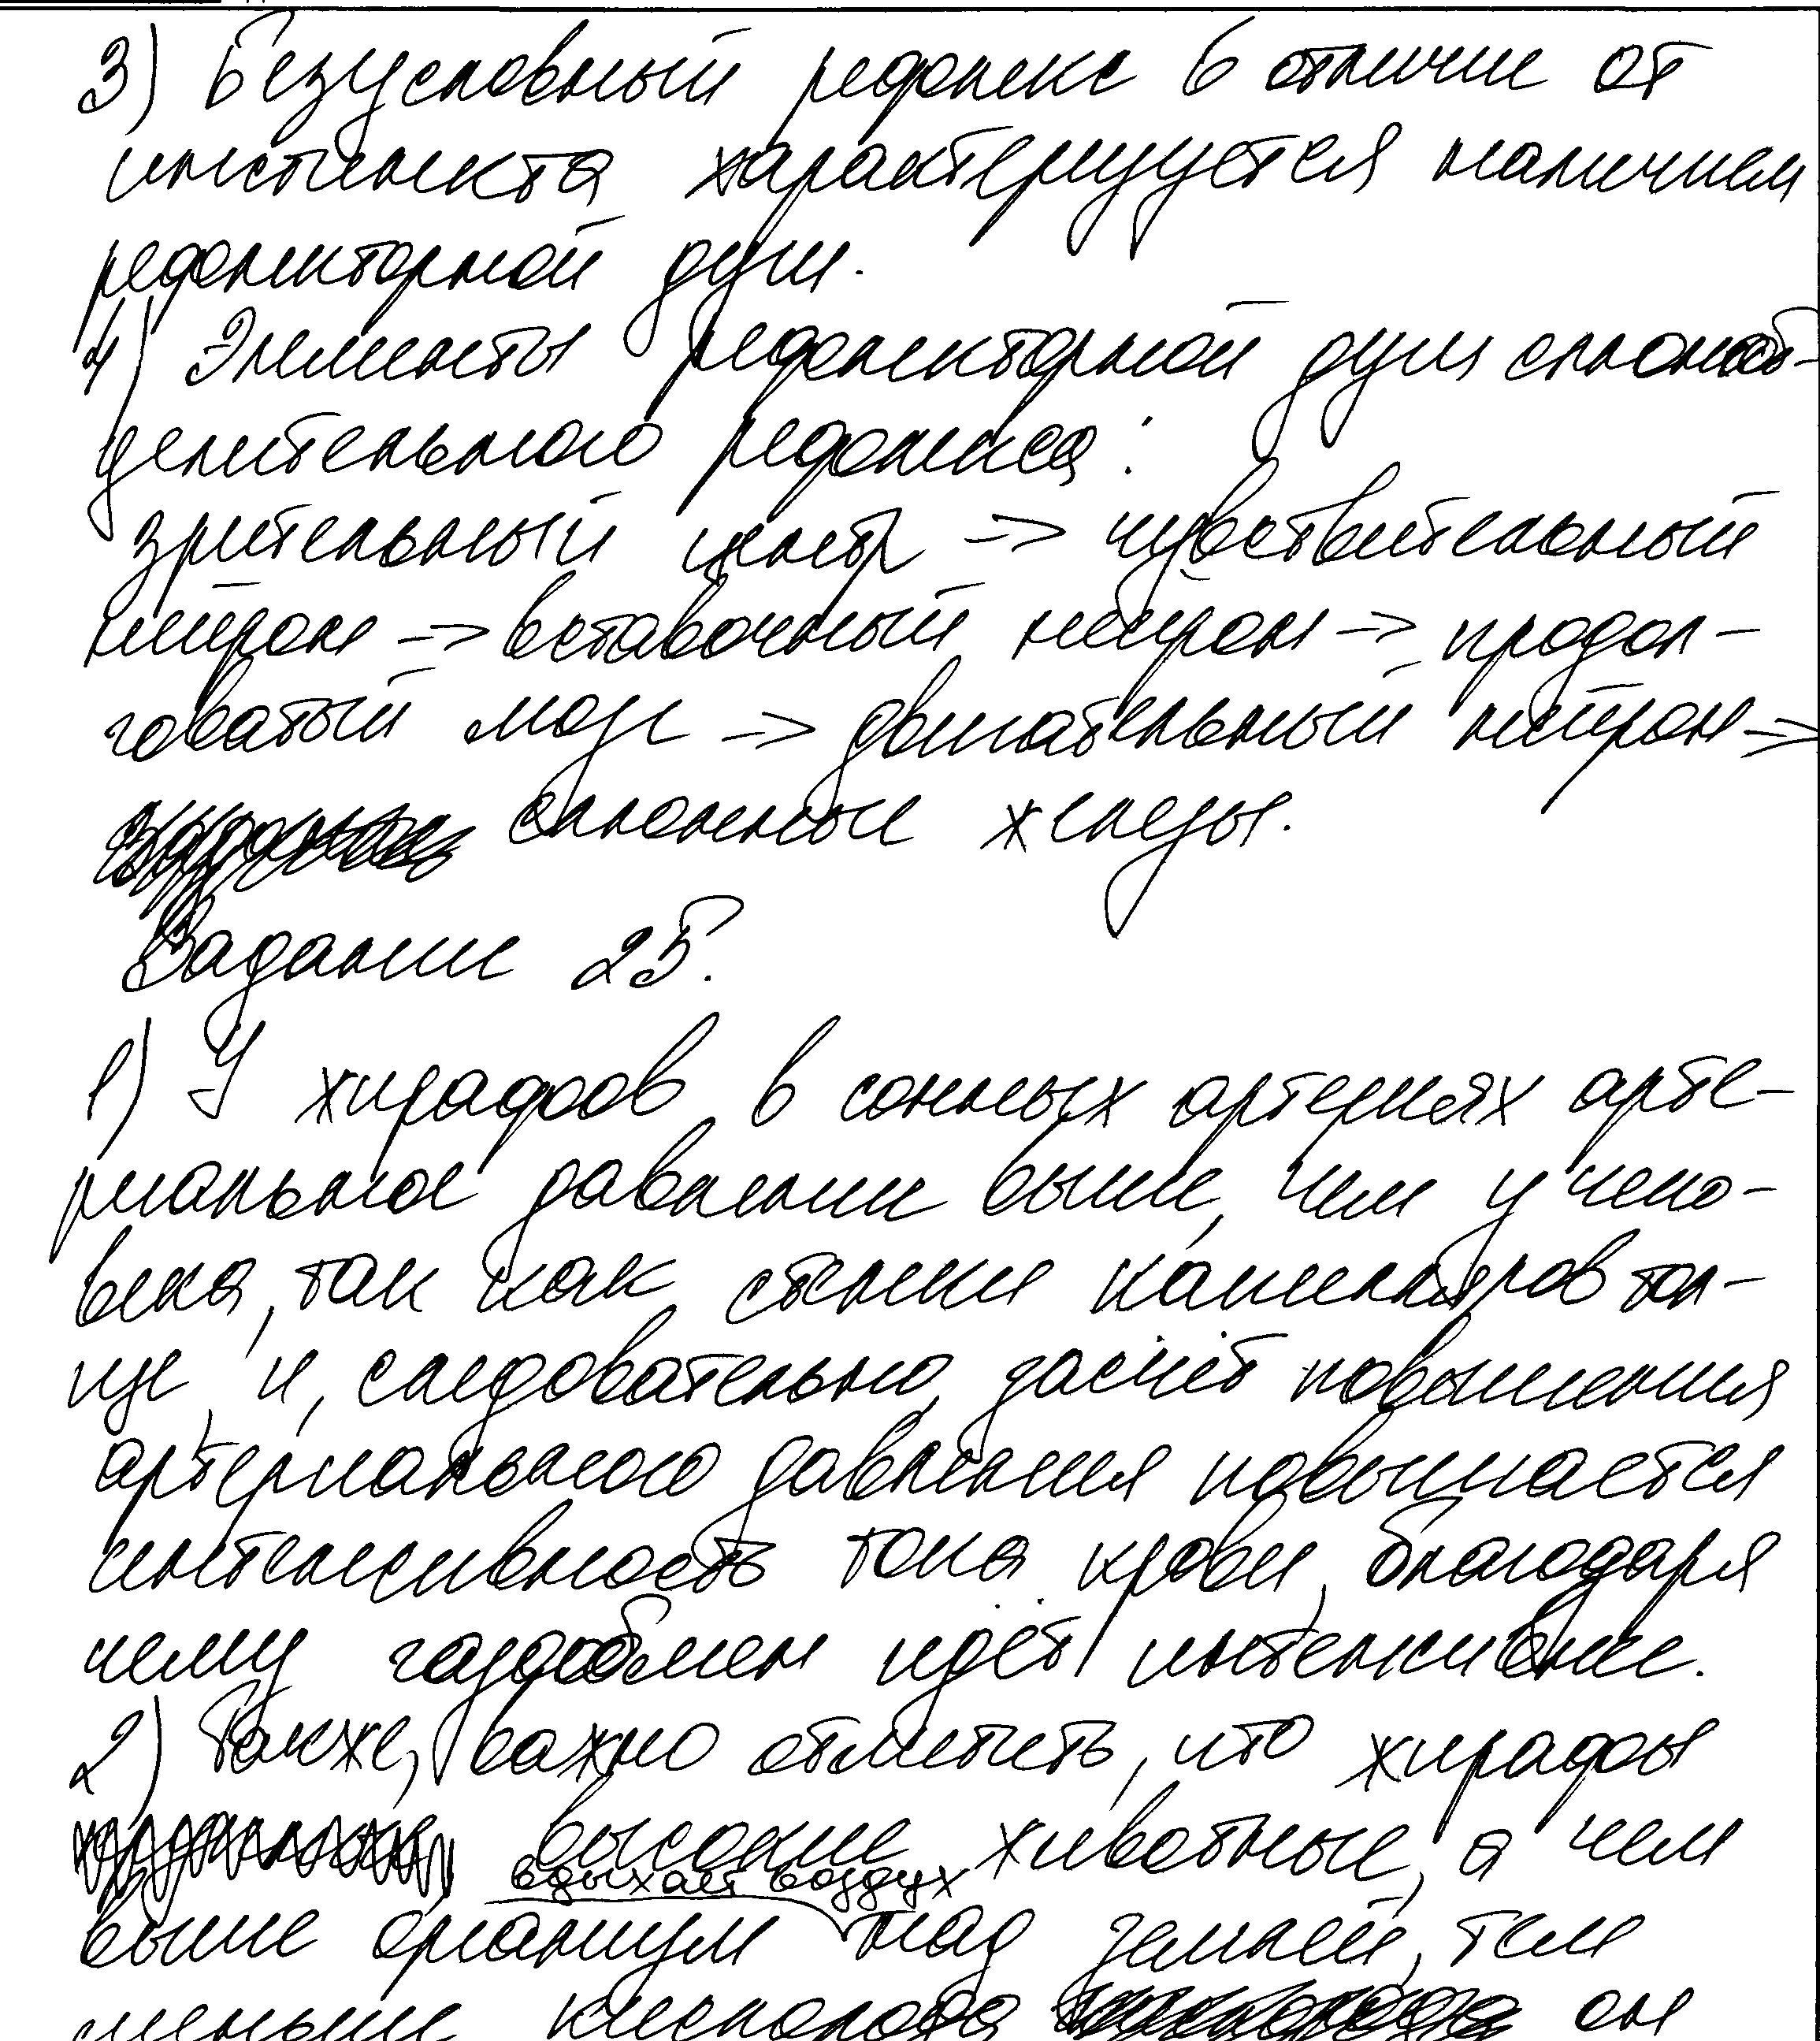 3) Безусловный рефлекс в отличие от
инстинкта характеризуется наличием
рефлекторной дуги.
4) Элементы рефлекторной дуги слюноот-
делительного рефлекса:
зрительный центр => чувствительный
нейрон => вставочный нейрон => продол-
говатый мозг => двигательный нейрон =>
слюнные железы.
Задание 25.
1) У жирафов в сонных артериях арте-
риальное давление выше, чем у чело-
века, так как стенки капилляров тол-
ще, и, следовательно, засчёт повышения
артериального давления повышается
интенсивность тока крови, благодаря
чему газообмен идёт интенсивнее.
2) Также, важно отметить, что жирафы
высокие животные, а чем
вдыхает воздух
выше организм над землёй, тем
меньше кислорода он